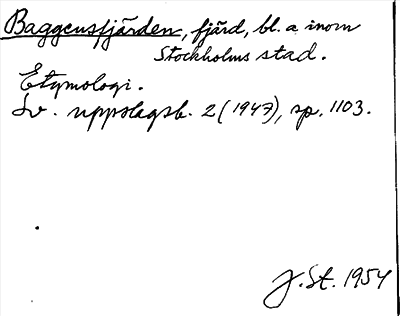 Baggensfjärden, fjärd, bl. a inom
Stockholms stad.
Etymologi.
Sv. uppslagsb. 2 (1947), sp. 1103.
J. St. 1954